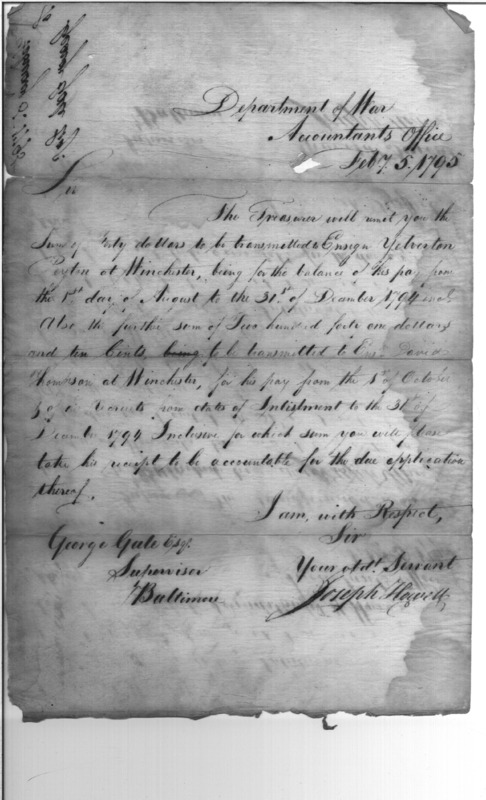 Department of War
Accountants Office
Feby. 5. 1795
Sir
The Treasurer will remit you the
Sum of dollars to be transmitted Ensign Yelverton
Peyton at Winchester, being for the balance of his pay from
the 1st day of August to the 31st of December 1794 incl
Also the further sum of Two hundred forty one dollars
and ten Cents, being to be transmitted to Ens David
Thompson at Winchester, for his pay from the 1st of October
& of Recruits from dates of Inlistment to the 31st of
December 1794 Inclusive for which sum you will please
take his receipt to be accountable for the due application
thereof.
I am, with Respect,
Sir
Your obdt. Servant
Joseph Howell
George Gale Esqr.
Supervisor
Baltimore